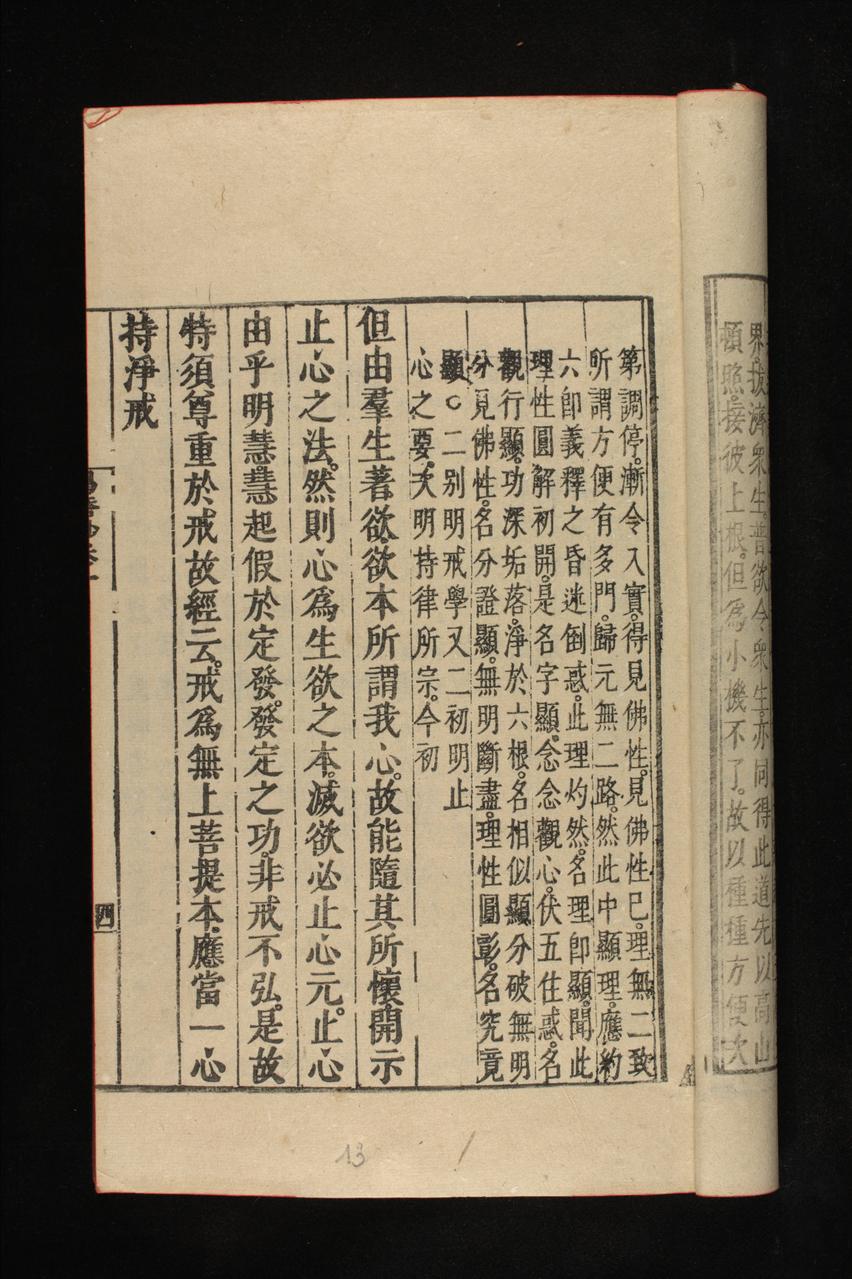 界。拔濟衆生。普欲令衆生。亦同得此道。先以高山
頓照。接彼上根。但爲小機不了。故以種種方便。次
第調停。漸令入實。得見佛性。見佛性已。理無二致
所謂方便有多門。歸元無二路。然此中顯理。應約
六卽義釋之。昏迷倒惑。此理灼然。名理卽顯。聞此
理性。圓解初開。是名字顯。念念觀心。伏五住惑。名
觀行顯。功深垢落。淨於六根。名相似顯。分破無明
分見佛性。名分證顯。無明斷盡。理性圓彰。名究竟
顯。○二別明戒學又二初明止
心之要。次明持律所宗。今初
但由羣生著欲。欲本所謂我心。故能隨其所懷。開示
止心之法。然則心爲生欲之本。滅欲必止心元。止心
由乎明慧。慧起假於定發。發定之功。非戒不弘。是故
特須尊重於戒。故經云。戒爲無上菩提本。應當一心
持淨戒
四
13